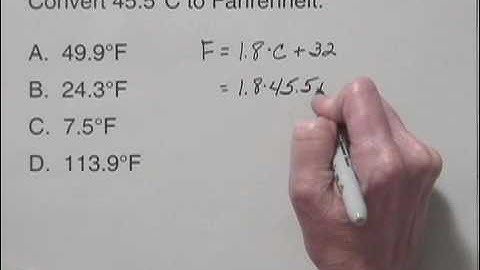 Convert 45.5°C to Fahrenheit.
A. 49.9°F
B. 24.3°F
C. 7.5°F
D. 113.9°F
F = 1.8 · C + 32
= 1.8 · 45.5